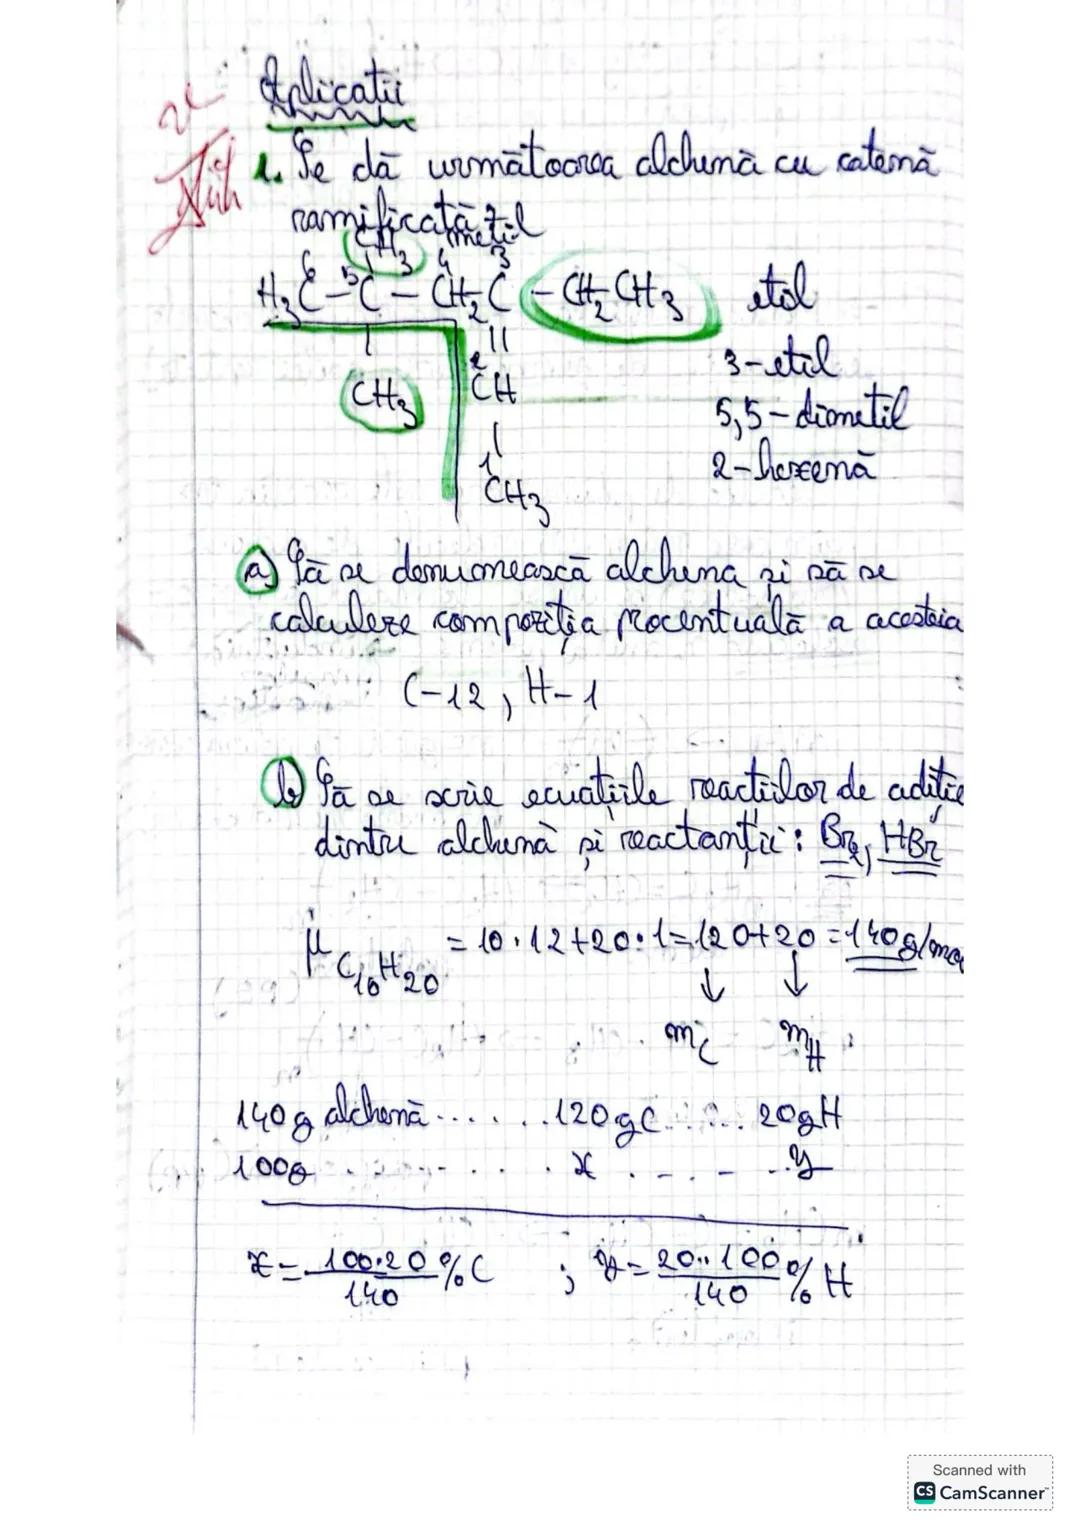 Aplicatii
1. Se dă următoarea alchenă cu catenă
ramificată
metil
CH3
6 5 4 3
H3C-C-CH2C-CH2CH3 etil
CH3
2
CH
1
CH3
3-etil
5,5-dimetil
2-hexenă
a) Să se denumească alchena și să se
calculeze compoziția procentuală a acesteia
C-12, H-1
b) Să se scrie ecuațiile reactiilor de aditie
dintre alchenă și reactanții: Br2, HBr
μ C10H20 = 10·12+20·1=120+20=140g/mol
↓ ↓
mC mH
140g alchenă......120gC......20gH
100g ........ x ..... y
x = 100·20/140 % C ; y = 20·100/140 % H
Scanned with
CS CamScanner